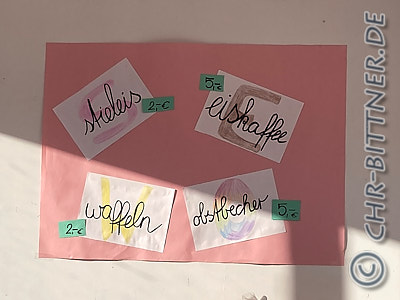 stieleis
2,-€
5,-€
eiskaffee
waffeln
2,-€
obstbecher
5,-€
© CHR-BITTNER.DE